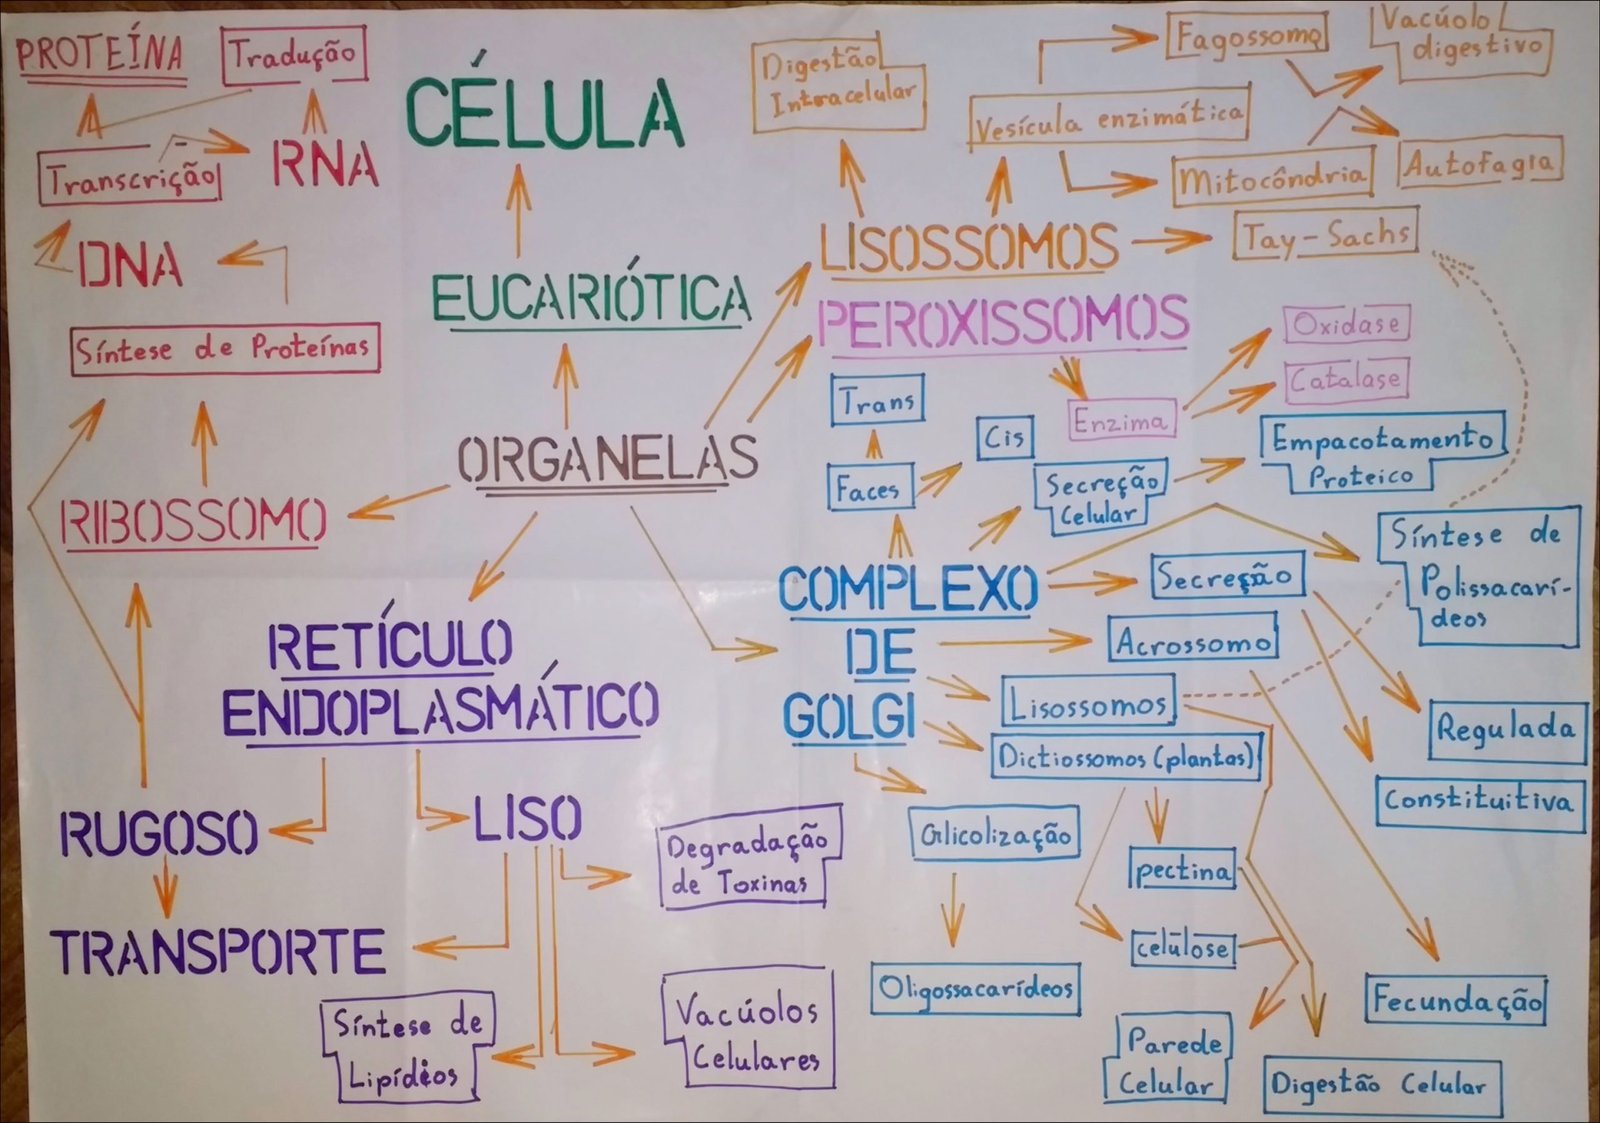 PROTEÍNA
Tradução
Transcrição
RNA
DNA
Síntese de Proteínas
RIBOSSOMO
CÉLULA
EUCARIÓTICA
ORGANELAS
Digestão
Intracelular
Vesícula enzimática
Fagossomo
Vacúolo
digestivo
Mitocôndria
Autofagia
LISOSSOMOS
Tay-Sachs
PEROXISSOMOS
Oxidase
Catalase
Enzima
Trans
Cis
Faces
Secreção
Celular
Empacotamento
Proteico
COMPLEXO
DE
GOLGI
Síntese de
Polissacarí-
deos
Secreção
Acrossomo
Lisossomos
Dictiossomos (plantas)
Regulada
Constituitiva
Glicolização
pectina
celulose
Oligossacarídeos
Fecundação
Parede
Celular
Digestão Celular
RETÍCULO
ENDOPLASMÁTICO
RUGOSO
LISO
TRANSPORTE
Degradação
de Toxinas
Síntese de
Lipídios
Vacúolos
Celulares